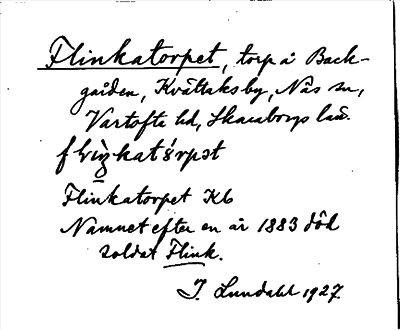 Flinkatorpet, torp å Back-
gården, Kvättaksby, Näs sn,
Vartofta hd, Skaraborgs län.
Flinkatorpet Kb
Namnet efter en år 1883 död
soldat Flink.
J. Lundahl 1927.